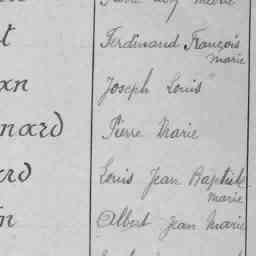 t Ferdinand François
marie
an Joseph Louis
nard Pierre Marie
ard Louis Jean Baptiste
marie
n Albert Jean Marie